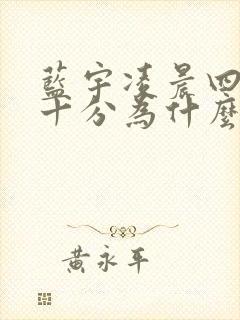 藍宇凌晨四
十分為什麼
黃永平